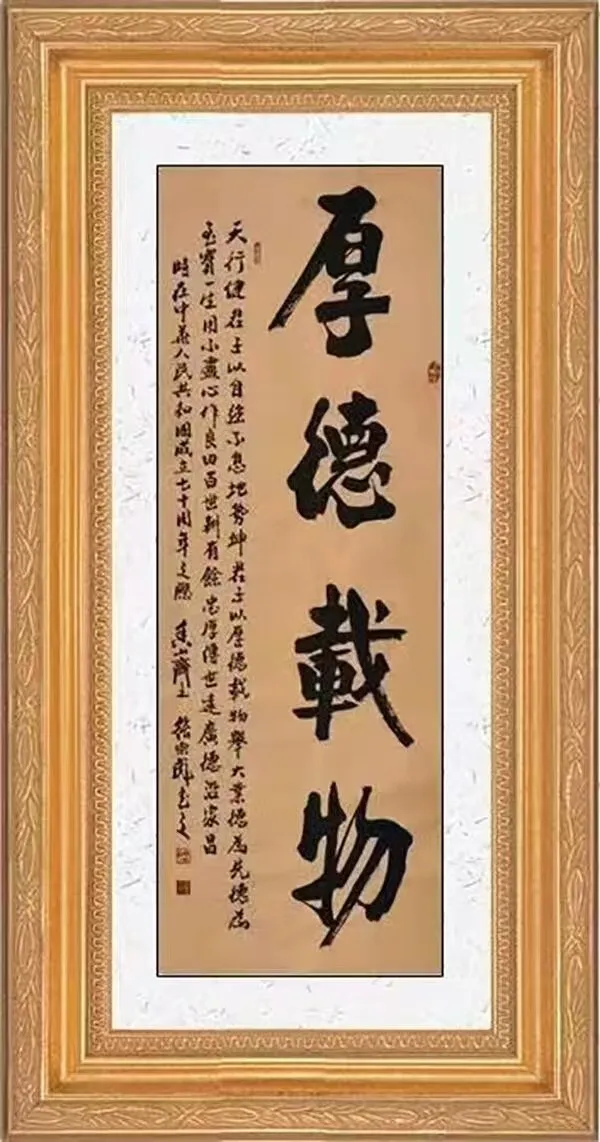 厚德載物
天行健君子以自强不息地势坤君子以厚德載物舉大業德爲先德爲
至寳一生用心靈心作良田百世耕有餘忠厚傳世遠廣德滋家昌
時在中華人民共和國成立七十周年之際